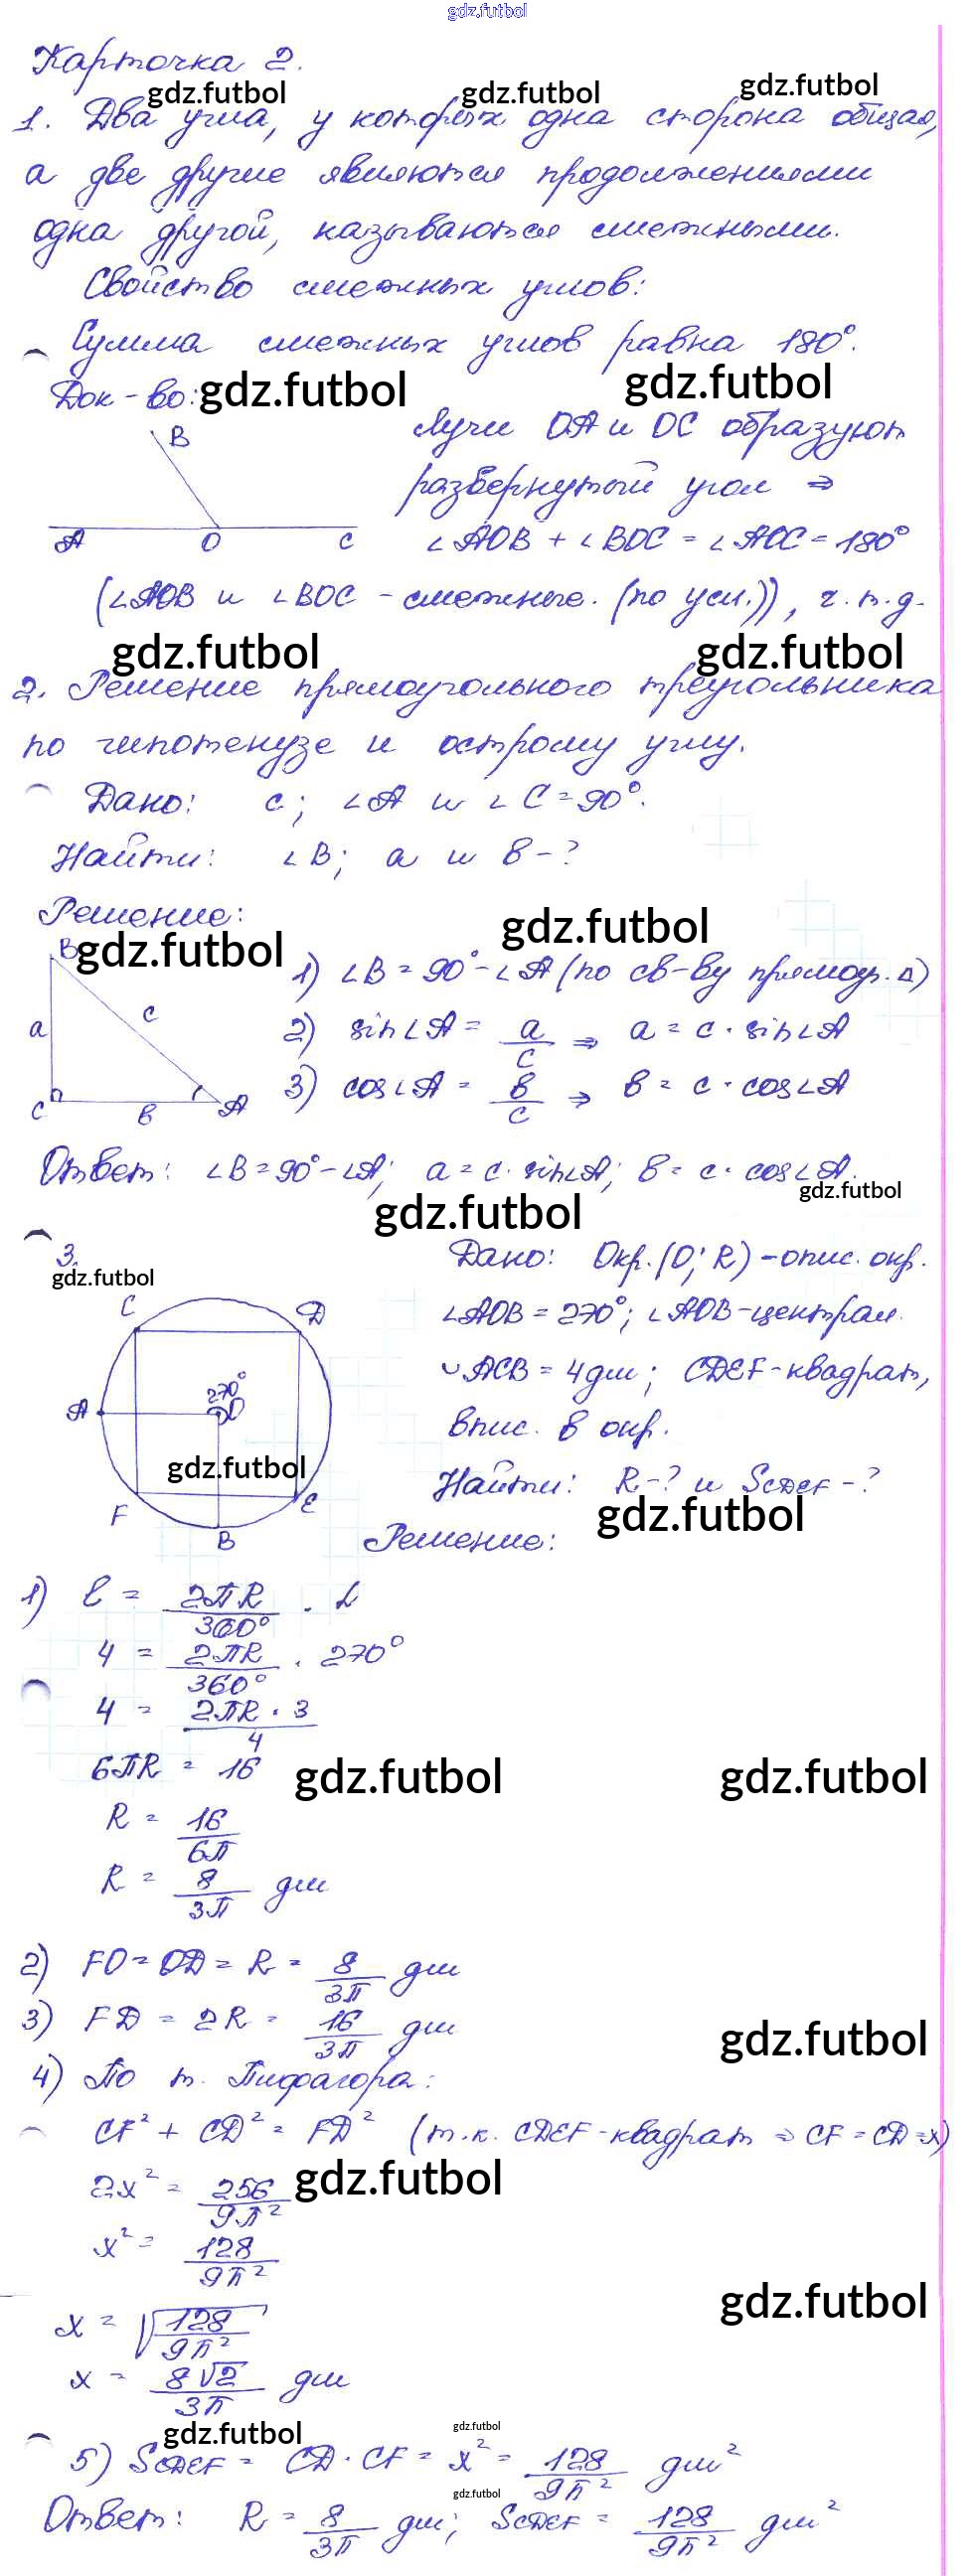 gdz.futbol
Карточка 2.
gdz.futbol gdz.futbol gdz.futbol
1. Два угла, у которых одна сторона общая,
а две другие являются продолжениями
одна другой, называются смежными.
Свойство смежных углов:
Сумма смежных углов равна 180°.
Док-во: gdz.futbol gdz.futbol
B
Лучи OA и OC образуют
развернутый угол ⇒
A O C
∠AOB + ∠BOC = ∠AOC = 180°
(∠AOB и ∠BOC - смежные. (по усл.)), ч.т.д.
gdz.futbol gdz.futbol
2. Решение прямоугольного треугольника
по гипотенузе и острому углу.
Дано: c; ∠A и ∠C = 90°.
Найти: ∠B; a и b - ?
Решение:
gdz.futbol gdz.futbol
B
1) ∠B = 90° - ∠A (по св-ву прямоуг. Δ)
a c
2) sin∠A = a/c ⇒ a = c · sin∠A
3) cos∠A = b/c ⇒ b = c · cos∠A
C b A
Ответ: ∠B = 90° - ∠A; a = c · sin∠A; b = c · cos∠A.
gdz.futbol gdz.futbol
3.
gdz.futbol
Дано: Окр. (O; R) - опис. окр.
C D
∠AOB = 270°; ∠AOB - централ.
270°
◡ACB = 4 дм; CDEF - квадрат,
A O
впис. в окр.
gdz.futbol
Найти: R - ? и SCDEF - ?
F E
B
gdz.futbol
Решение:
1) l = 2πR/360° · α
4 = 2πR/360° · 270°
4 = 2πR · 3/4
6πR = 16
gdz.futbol gdz.futbol
R = 16/6π
R = 8/3π дм
2) FO = OD = R = 8/3π дм
3) FD = 2R = 16/3π дм
gdz.futbol
4) По т. Пифагора:
CF² + CD² = FD² (т.к. CDEF - квадрат ⇒ CF = CD = x)
2x² = 256/9π²
gdz.futbol
x² = 128/9π²
gdz.futbol
x = √128/9π²
x = 8√2/3π дм
gdz.futbol gdz.futbol
5) SCDEF = CD · CF = x² = 128/9π² дм²
gdz.futbol
Ответ: R = 8/3π дм; SCDEF = 128/9π² дм²